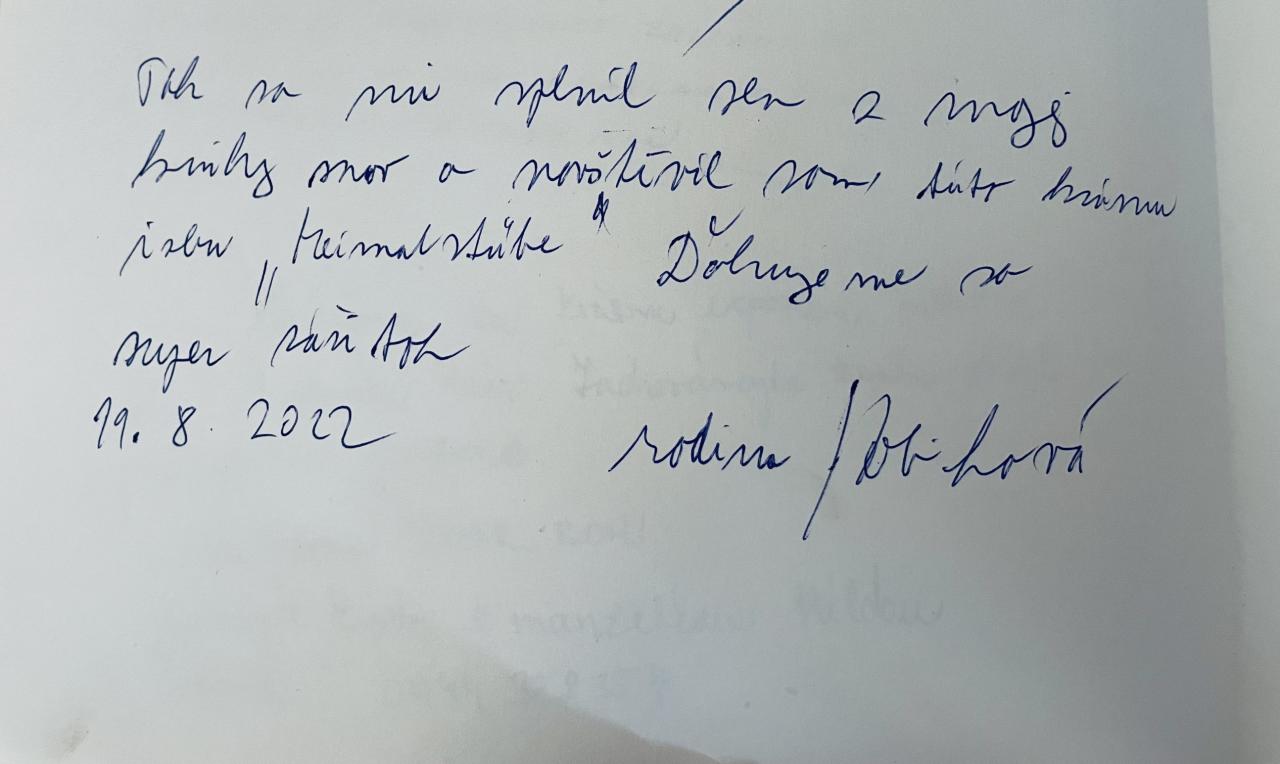 Tak sa mi splnil sen z mojej
knihy snov a navštívil som túto krásnu
izbu „Heimatstube“ Ďakujeme za
super zážitok
19. 8. 2022
rodina